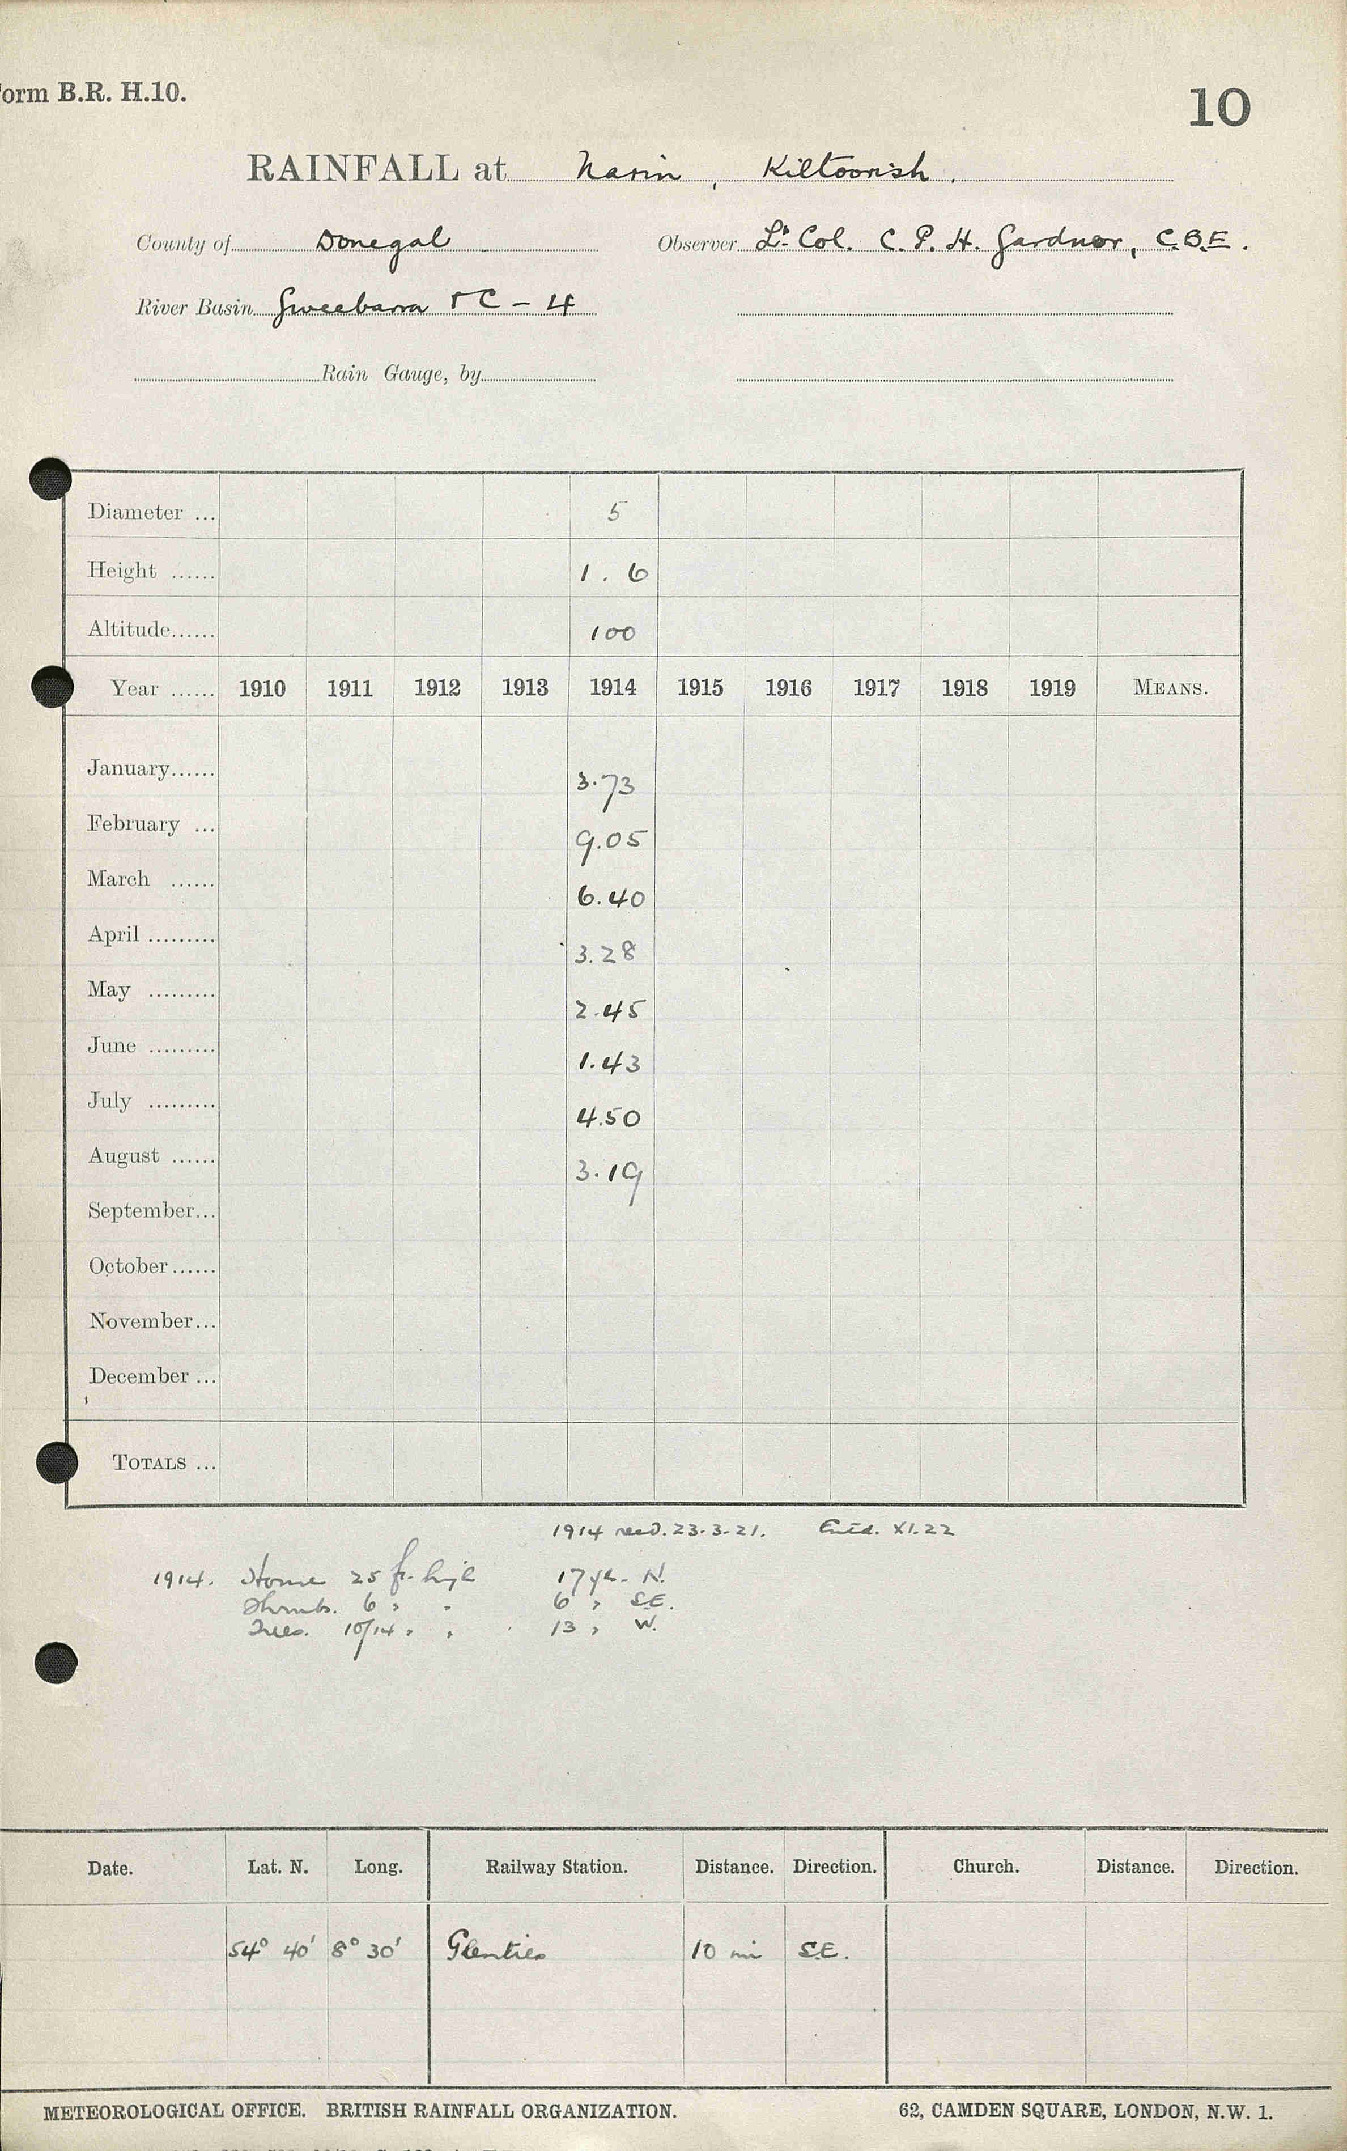 orm B.R. H.10.
10
RAINFALL at Narin, Kiltoorish.
County of Donegal Observer Lt. Col. C. P. H. Gardnor, C.B.E.
River Basin Gweebarra &C - 4
Rain Gauge, by
Diameter ... 5
Height ...... 1. 6
Altitude...... 100
Year ...... 1910 1911 1912 1913 1914 1915 1916 1917 1918 1919 MEANS.
January...... 3.73
February ... 9.05
March ...... 6.40
April ......... 3.28
May ......... 2.45
June ......... 1.43
July ......... 4.50
August ...... 3.19
September...
October......
November...
December ...
TOTALS ...
1914 recd. 23.3.21. Entd. XI.22
1914. House 25 ft. high 17 yds. N.
Shrubs. 6 " " 6 " S.E.
Trees. 10/14 " " 13 " W.
Date. Lat. N. Long. Railway Station. Distance. Direction. Church. Distance. Direction.
54° 40' 8° 30' Glenties 10 mi S.E.
METEOROLOGICAL OFFICE. BRITISH RAINFALL ORGANIZATION. 62, CAMDEN SQUARE, LONDON, N.W. 1.